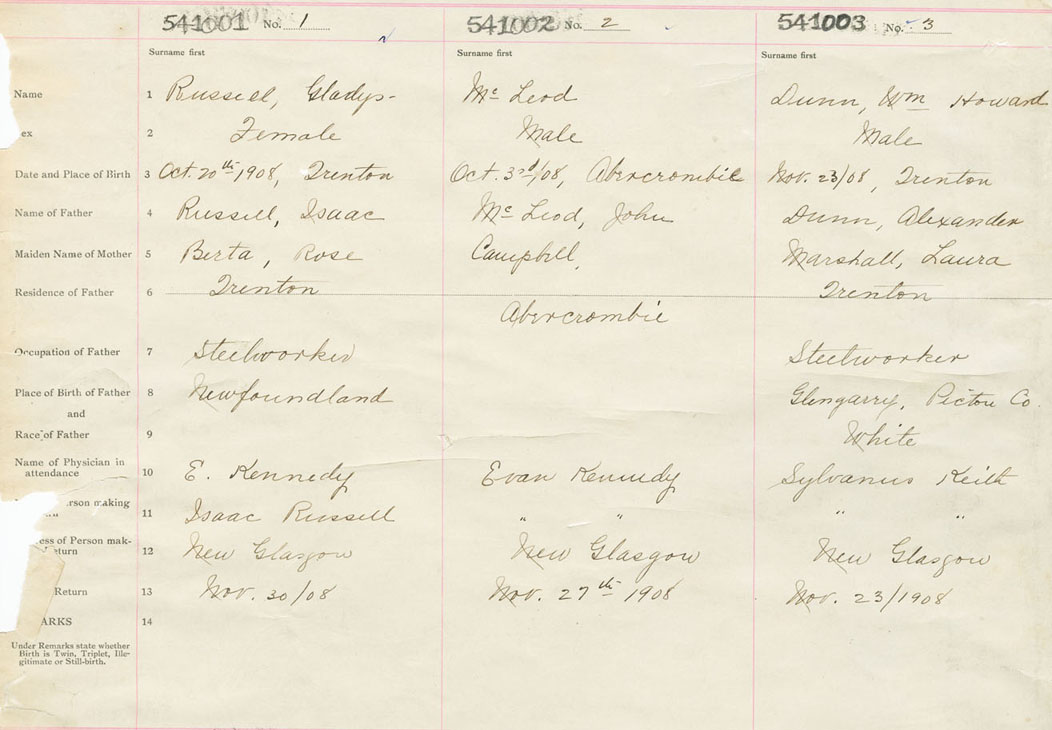 541001 No. 1 541002 No. 2 541003 No. 3
Surname first Surname first Surname first
Name 1 Russell, Gladys- Mc Leod Dunn, Wm Howard
ex 2 Female Male Male
Date and Place of Birth 3 Oct. 20th 1908, Trenton Oct. 3rd/08, Abercrombie Nov. 23/08, Trenton
Name of Father 4 Russell, Isaac Mc Leod, John Dunn, Alexander
Maiden Name of Mother 5 Berta, Rose Campbell, Marshall, Laura
Residence of Father 6 Trenton Abercrombie Trenton
Occupation of Father 7 Steelworker Steelworker
Place of Birth of Father 8 Newfoundland Glengarry, Pictou Co.
and
Race of Father 9 White
Name of Physician in
attendance 10 E. Kennedy Evan Kennedy Sylvanus Keith
erson making
11 Isaac Russell " " " "
ess of Person mak-
eturn 12 New Glasgow New Glasgow New Glasgow
Return 13 Nov. 30/08 Nov. 27th 1908 Nov. 23/1908
ARKS 14
Under Remarks state whether
Birth is Twin, Triplet, Ille-
gitimate or Still-birth.